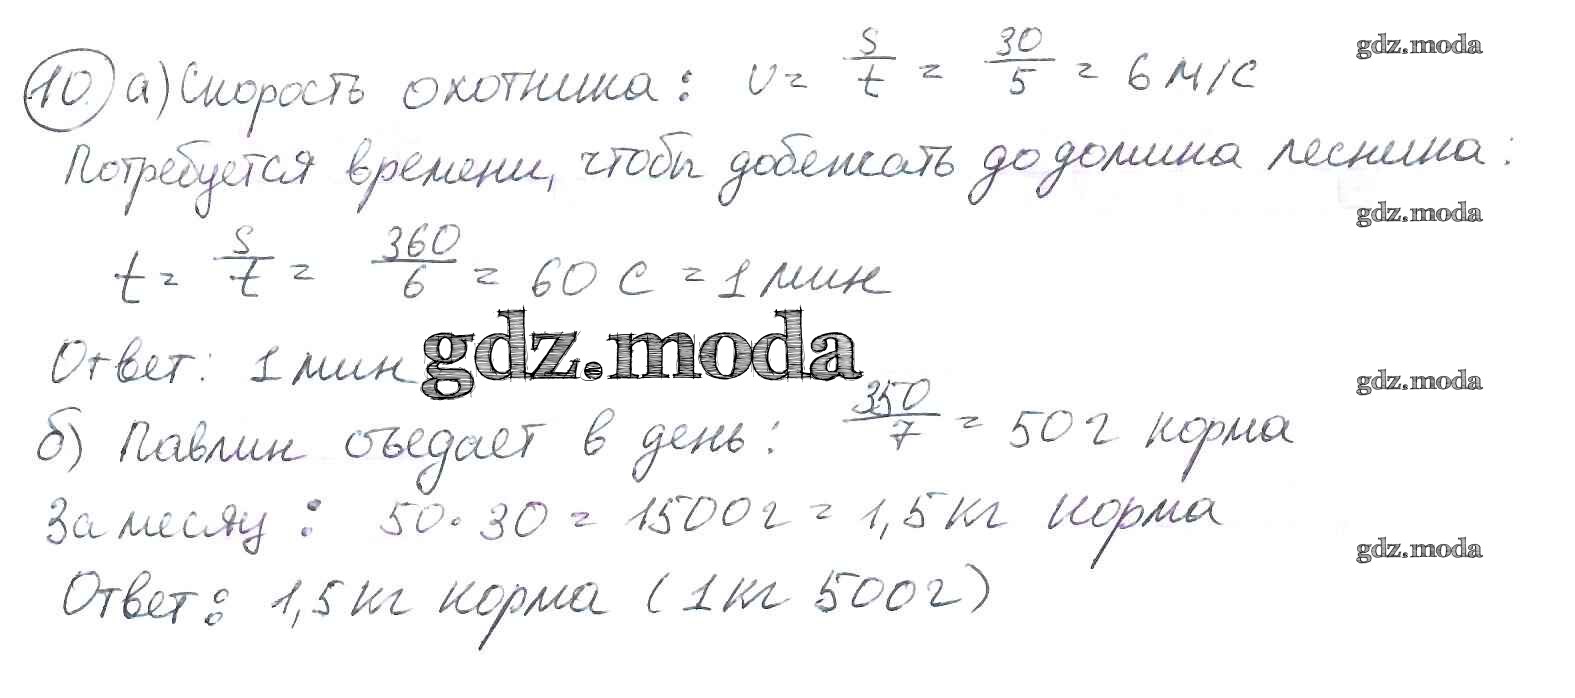 10. а) Скорость охотника: v = s/t = 30/5 = 6 м/с
gdz.moda
Потребуется времени, чтобы добежать до домика лесника:
gdz.moda
t = s/t = 360/6 = 60 с = 1 мин
Ответ: 1 мин
gdz.moda
gdz.moda
б) Павлин съедает в день: 350/7 = 50 г корма
За месяц: 50 · 30 = 1500 г = 1,5 кг корма
gdz.moda
Ответ: 1,5 кг корма (1 кг 500 г)